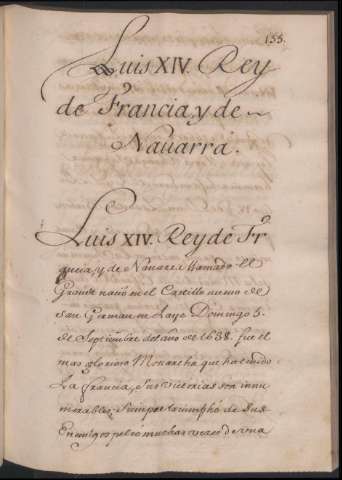 155.
Luis XIV. Rey
de Francia, y de
Nauarra.
Luis XIV. Rey de Fr.
ancia, y de Nauarra llamado el
Grande nacio en el Castillo nuevo de
San German en Laye Domingo 5.
de Septiembre del año de 1638. fue el
mas glorioso Monarcha que ha tenido
La Francia, Sus victorias son innu
merables, siempre triumphó de sus
Enemigos peleó muchas veces de una